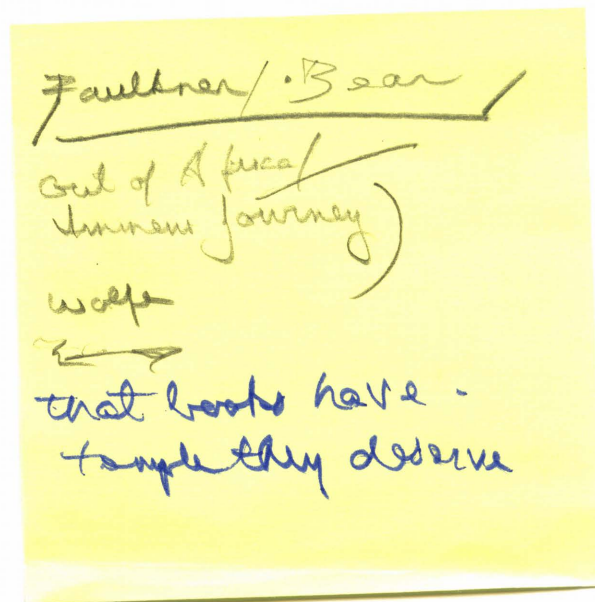 Faulkner / . Bear
Out of Africa /
Journey )
Wolfe
that books have -
temple they deserve